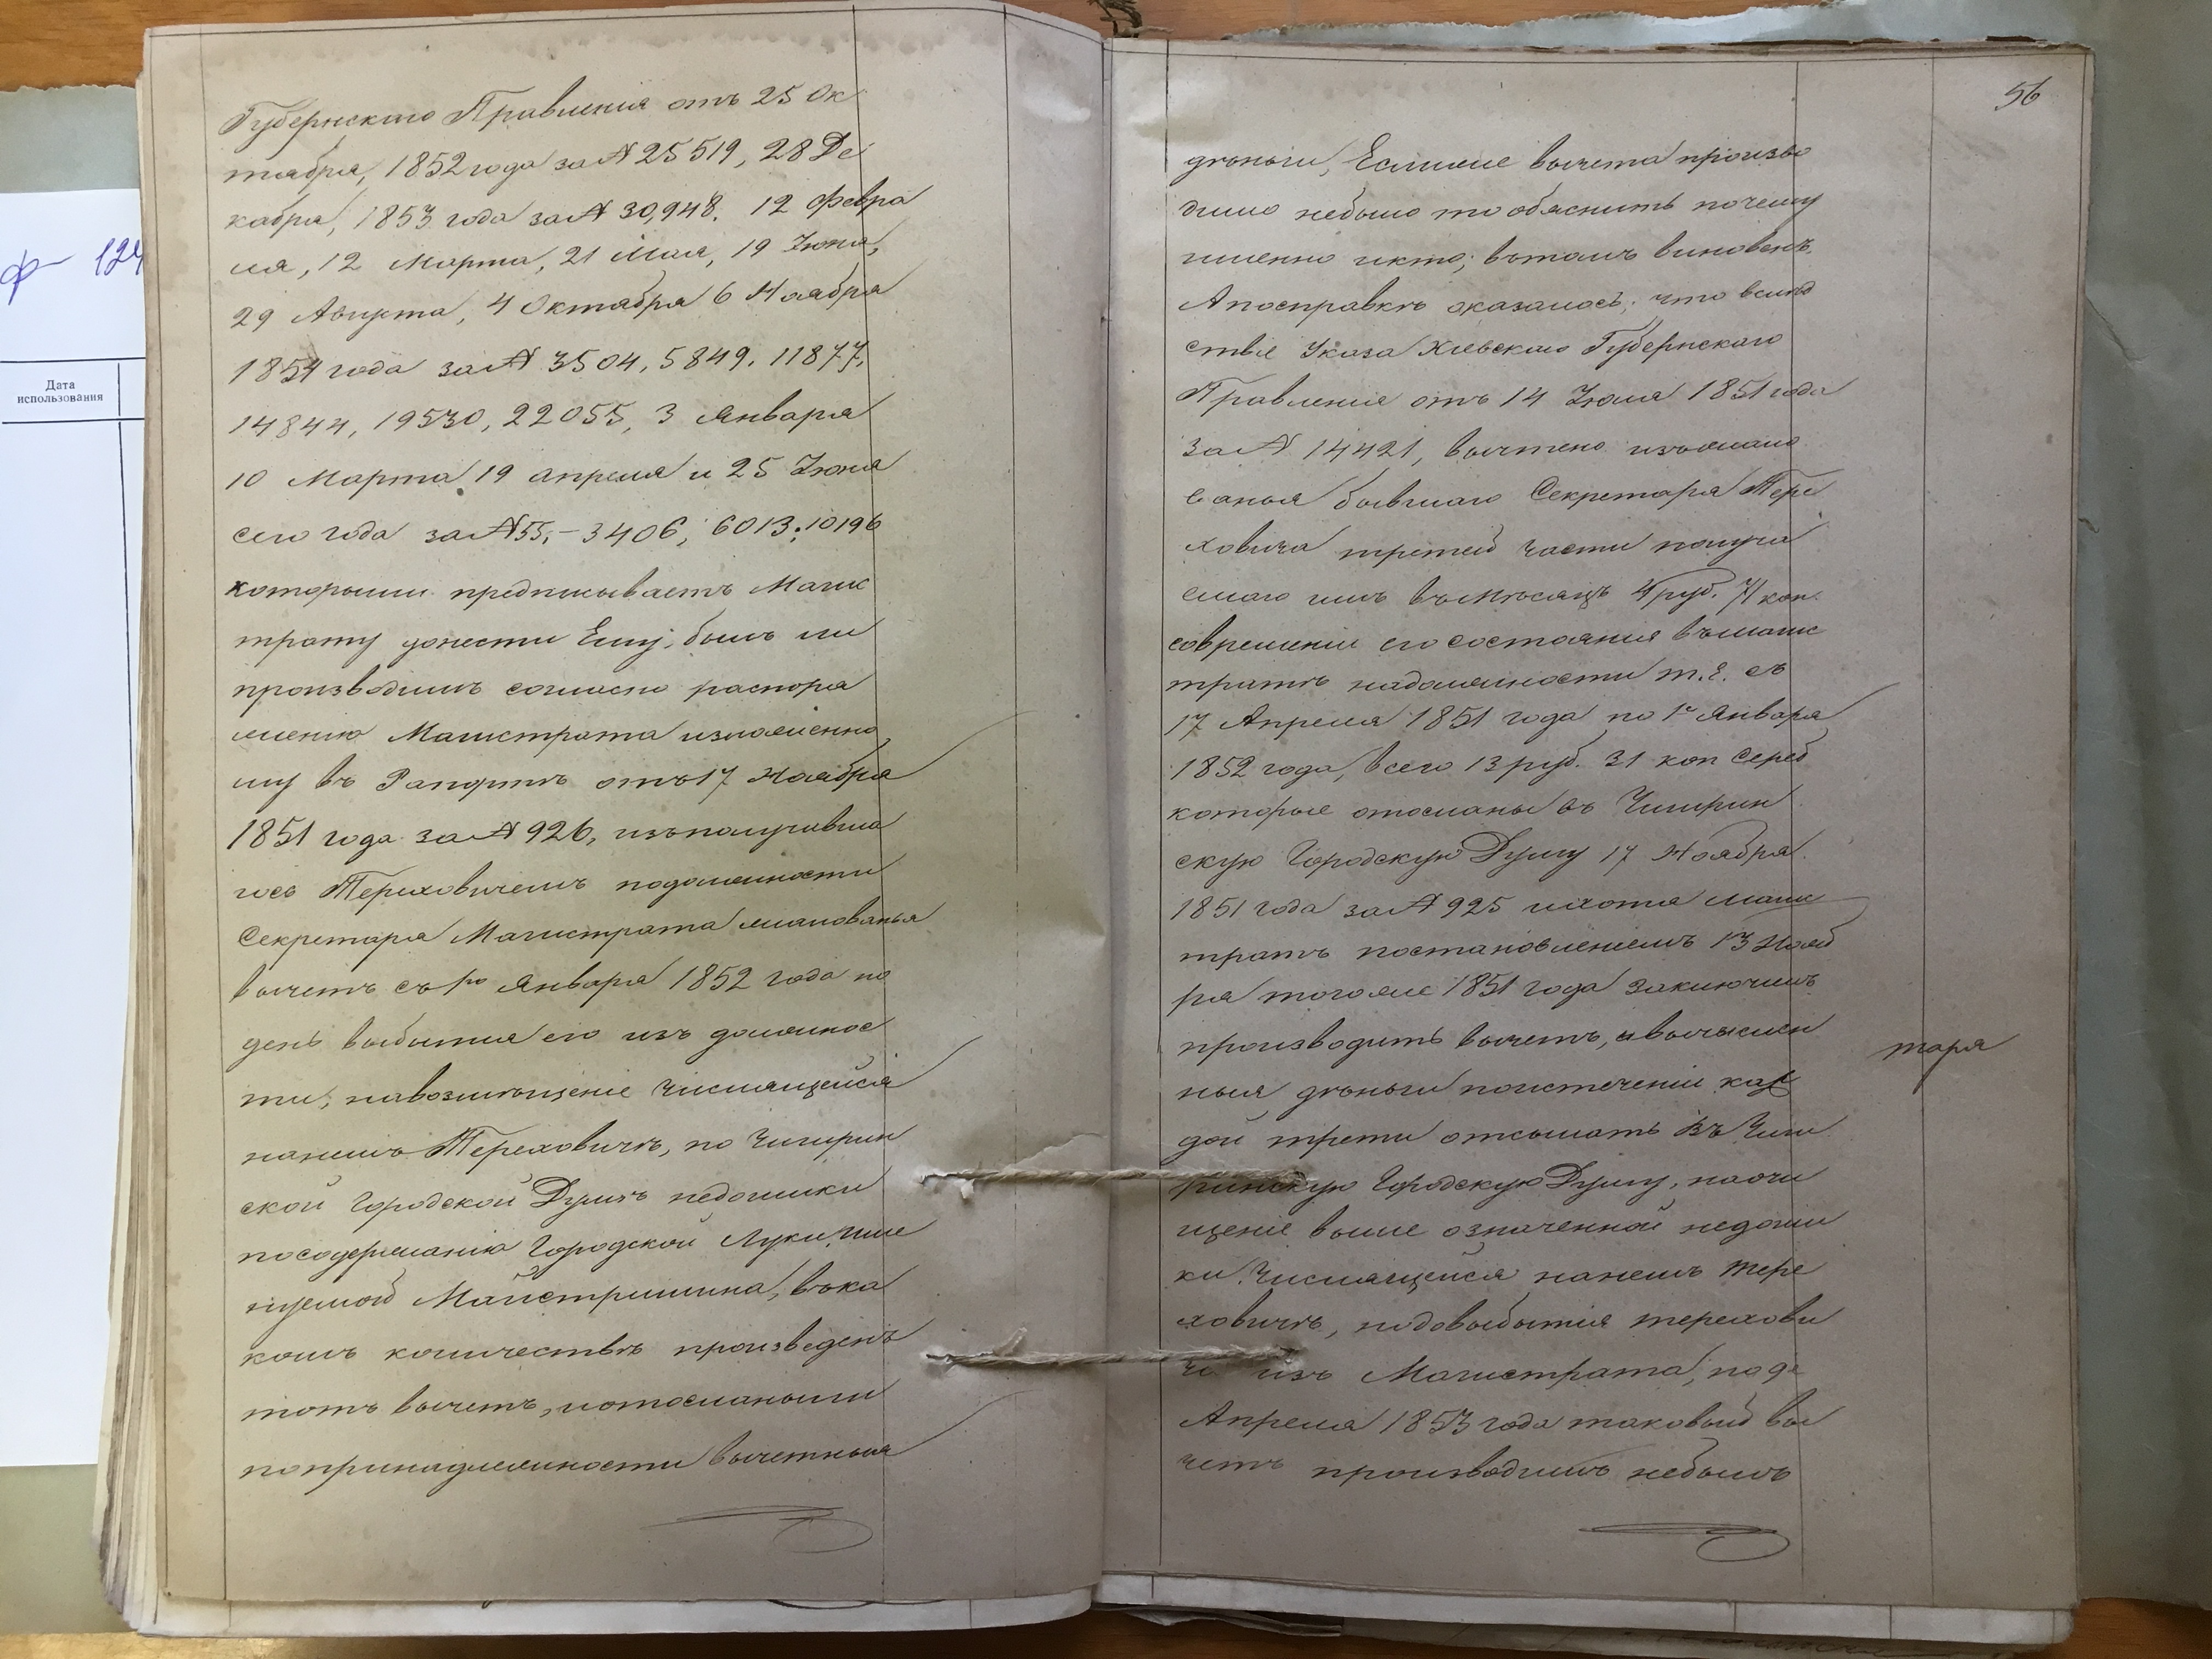 ф 124
Дата
использования
Губернскаго Правленія отъ 25 Ок
тября, 1852 года за № 25519, 28 Де
кабря, 1853 года за № 30,948. 12 Февра
ля, 12 Марта, 21 Мая, 19 Іюня,
29 Августа, 4 Октября 6 Ноября
1854 года за № 3504, 5849, 11877,
14844, 19530, 22055, 3 Января
10 Марта 19 апреля и 25 Іюня
сего года за № 55,- 3406, 6013; 10196
которыми предписываетъ Магис
трату донести Ему, былъ ли
производимъ согласно распоря
женію Магистрата изложенно
му въ Рапортѣ отъ 17 Ноября
1851 года за № 926, изъ получавша
гось Тереховичемъ по должности
Секретаря Магистрата жалованья
вычетъ съ 1го Января 1852 года по
день выбытія его изъ должнос
ти, на возмѣщеніе числящейся
на немъ Тереховичѣ, по Чигирин
ской Городской Думѣ недоимки
по содержанію Городской Луки, име
нуемой Майстришина, въ ка
комъ количествѣ произведенъ
тотъ вычетъ, и отосланы ли
по принадлежности вычетныя
56
деньги, Если же вычета произво
димо небыло то объяснить почему
именно и кто, въ томъ виновенъ.
А по справкѣ оказалось, что вслѣд
ствіе Указа Кіевскаго Губернскаго
Правленія отъ 14 Іюля 1851 года
за № 14421, вычтено изъ жало
ванья бывшаго Секретаря Тере
ховича третей части получа
емаго имъ въ мѣсяцъ 4 руб. 71 коп.
со времени его состоянія въ магис
тратѣ на должности т. е. съ
17 Апреля 1851 года по 1е Января
1852 года, всего 13 руб. 31 коп Сереб
которые отосланы въ Чигирин
скую Городскую Думу 17 Ноября
1851 года за № 925 и хотя магис
тратъ постановленіемъ 13 Нояб
ря того же 1851 года заключилъ
производить вычетъ, и вычислен
ныя деньги по истеченіи каж
дой трети отсылать въ Чиги
ринскую Городскую Думу, на очи
щеніе выше означенной недоим
ки, Числящейся на немъ Тере
ховичѣ, но до выбытія терехови
ча изъ Магистрата, по 9е
Апреля 1853 года таковый вы
четъ производимъ небылъ
таря